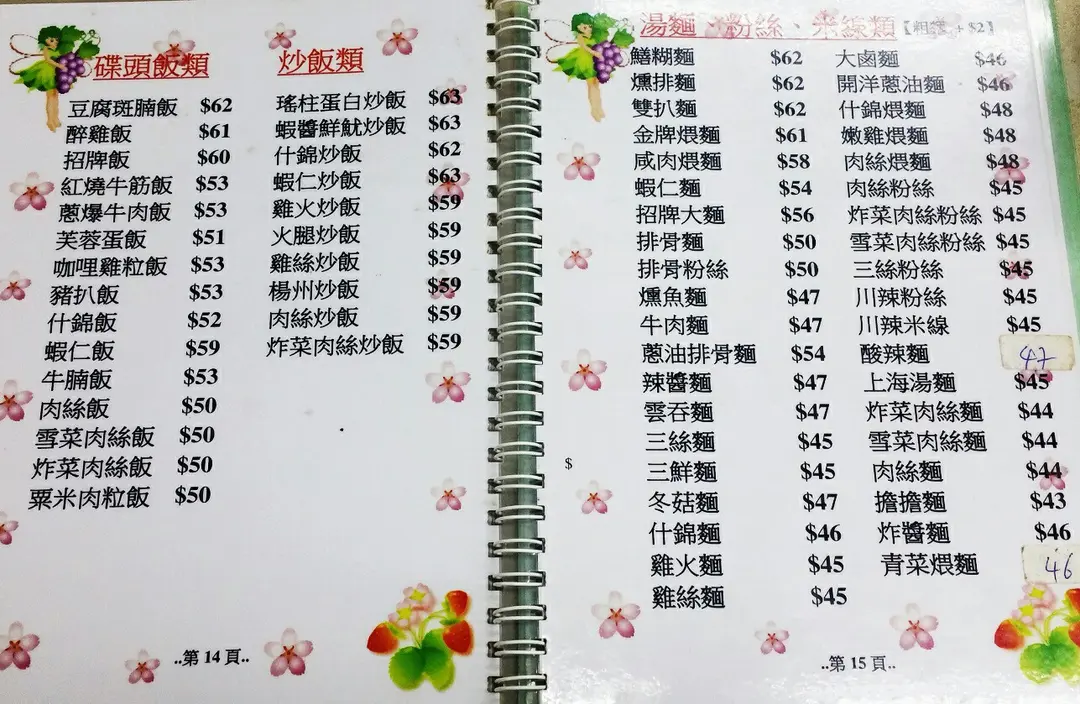 碟頭飯類
豆腐斑腩飯 $62
醉雞飯 $61
招牌飯 $60
紅燒牛筋飯 $53
蔥爆牛肉飯 $53
芙蓉蛋飯 $51
咖哩雞粒飯 $53
豬扒飯 $53
什錦飯 $52
蝦仁飯 $59
牛腩飯 $53
肉絲飯 $50
雪菜肉絲飯 $50
炸菜肉絲飯 $50
粟米肉粒飯 $50
炒飯類
瑤柱蛋白炒飯 $63
蝦醬鮮魷炒飯 $63
什錦炒飯 $62
蝦仁炒飯 $63
雞火炒飯 $59
火腿炒飯 $59
雞絲炒飯 $59
楊州炒飯 $59
肉絲炒飯 $59
炸菜肉絲炒飯 $59
..第 14 頁..
湯麵、粉絲、米線類【粗 + $2】
鱔糊麵 $62
燻排麵 $62
雙扒麵 $62
金牌煨麵 $61
咸肉煨麵 $58
蝦仁麵 $54
招牌大麵 $56
排骨麵 $50
排骨粉絲 $50
燻魚麵 $47
牛肉麵 $47
蔥油排骨麵 $54
辣醬麵 $47
雲吞麵 $47
三絲麵 $45
三鮮麵 $45
冬菇麵 $47
什錦麵 $46
雞火麵 $45
雞絲麵 $45
$
大鹵麵 $46
開洋蔥油麵 $46
什錦煨麵 $48
嫩雞煨麵 $48
肉絲煨麵 $48
肉絲粉絲 $45
炸菜肉絲粉絲 $45
雪菜肉絲粉絲 $45
三絲粉絲 $45
川辣粉絲 $45
川辣米線 $45
酸辣麵 47
上海湯麵 $45
炸菜肉絲麵 $44
雪菜肉絲麵 $44
肉絲麵 $44
擔擔麵 $43
炸醬麵 $46
青菜煨麵 46
..第 15 頁..